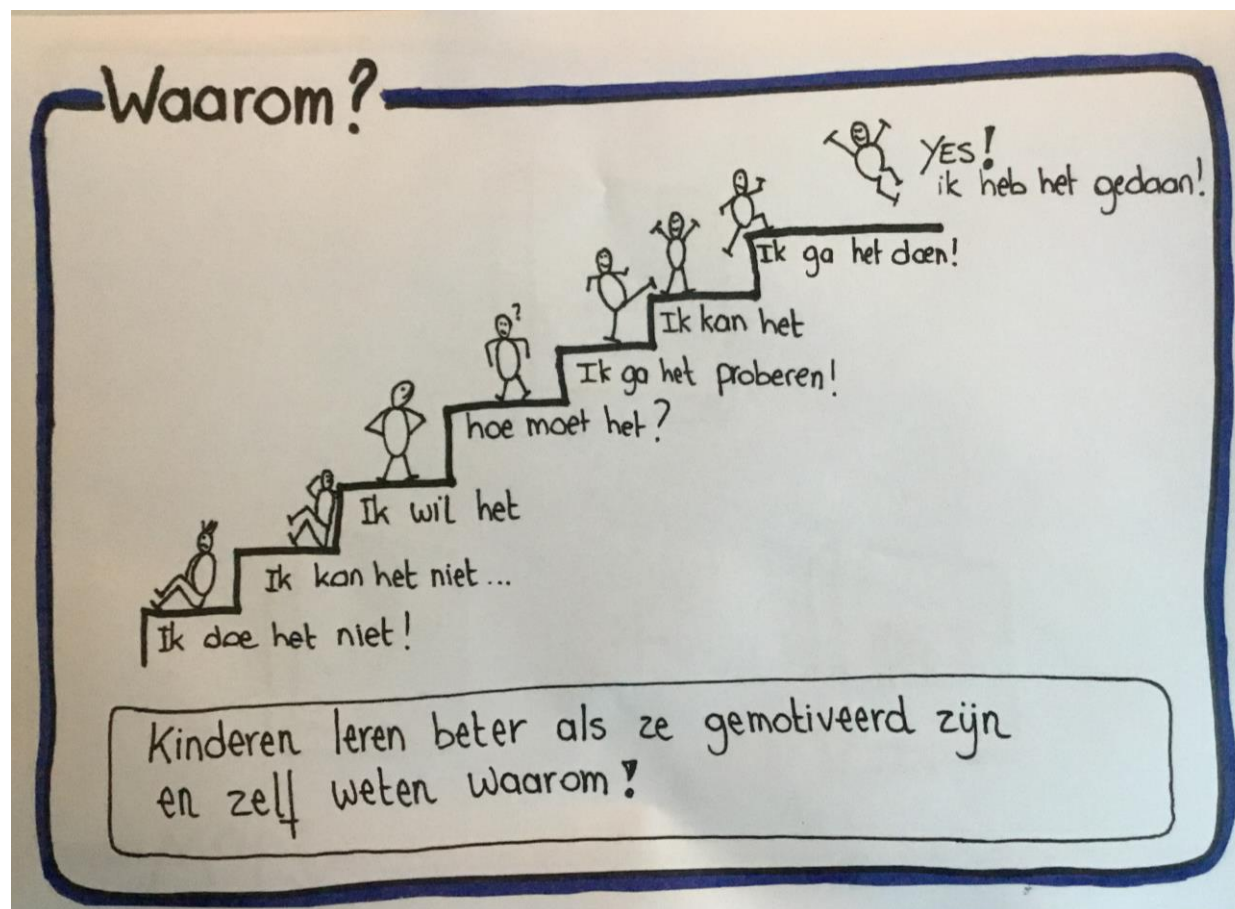 Waarom?
YES!
ik heb het gedaan!
Ik ga het doen!
Ik kan het
Ik ga het proberen!
?
hoe moet het?
Ik wil het
Ik kan het niet...
Ik doe het niet!
Kinderen leren beter als ze gemotiveerd zijn
en zelf weten waarom!